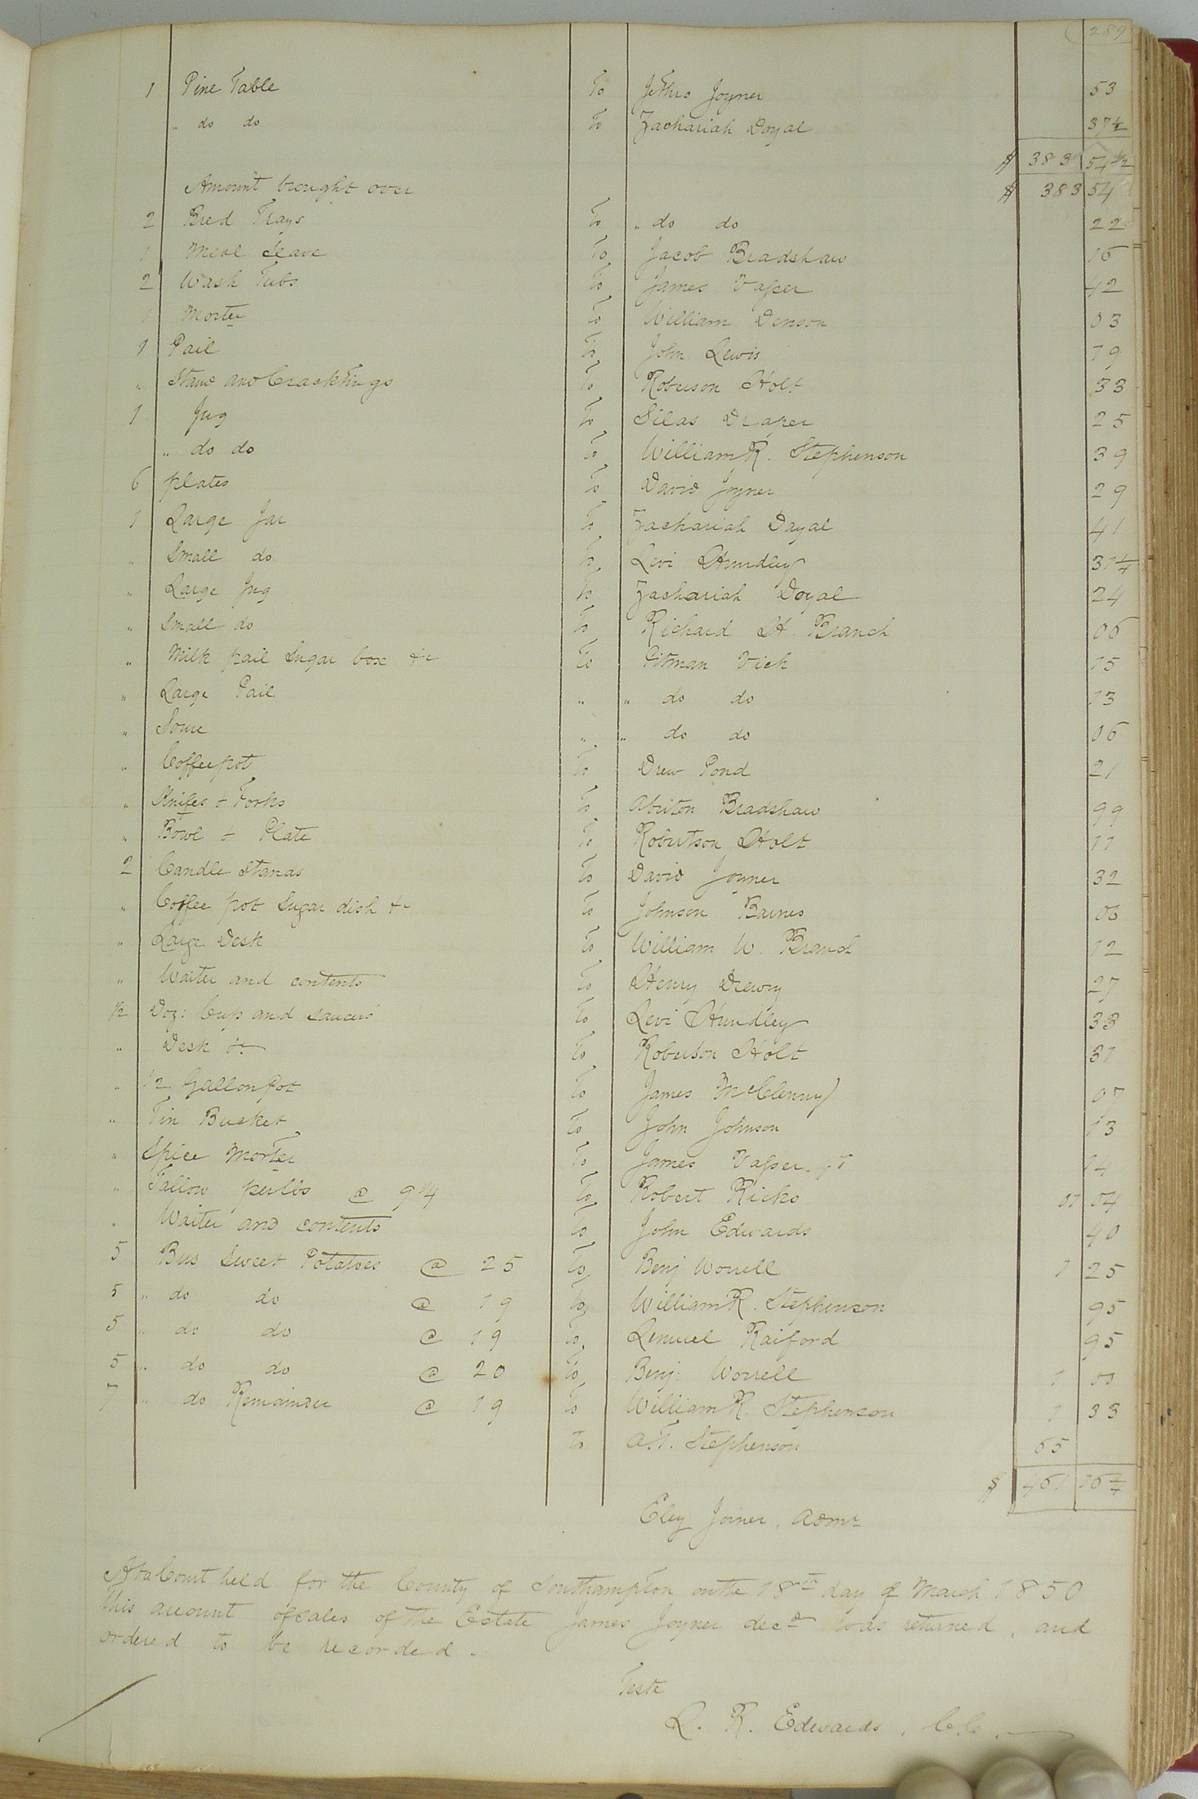 289
1 Pine Table To Jethro Joyner 53
" do do To Zachariah Doyal 37½
$ 383 54½
Amount brought over $ 383 54
2 Bred Trays To " do do 22
1 Meal Seave To Jacob Bradshaw 16
2 Wash Tubs To James Vasser 42
1 Morter To William Denson 03
1 Pail To John Lewis 19
" Stand and To Roberson Holt 33
1 Jug To Silas Draper 25
" do do To William R. Stephenson 39
6 plates To David Joyner 29
1 Large Jar To Zachariah Dayal 41
" Small do To Levi Hundley 31¼
" Large Jug To Zachariah Doyal 24
" Small do To Richard H. Branch 06
" Milk pail Sugar box &c To Pitman Vick 15
" Large Pail " " do do 13
" " " do do 06
" Coffeepot To Drew Pond 21
" Knifes & Forks To Bradshaw 99
" Bowl & Plate To Robertson Holt 11
2 Candle Stands To David Joyner 32
" Coffee pot Sugar dish &c To Johnson Barnes
" Large Desk To William W. 12
" Waiter and contents To Henry Drewry 27
½ Doz: Cups and saucers To Levi Hundley 33
" Desk &c To Roberson Holt 31
" ½ Gallon Pot To James McClenny 07
" Tin Bucket To John Johnson 13
" Spice Morter To James Vasser 14
" Tallow @ 9¼ To Robert Ricks 01 54
" Waiter and contents To John Edwards 40
5 Bus Sweet Potatoes @ 25 To Benj Worrell 1 25
5 " do do @ 19 To William R. Stephenson 95
5 " do do @ 19 To Lemuel Raiford 95
5 " do do @ 20 To Benj: Worrell 1 00
7 " do Remainder @ 19 To William R. Stephenson 1 33
To A.T. Stephenson 65
$ 461 16¾
Eley Joiner, Admr
At a Court held for the County of Southampton on the 18th day of March 1850
This account of sales of the Estate James Joyner decd was returned, and
ordered to be recorded.
Teste
L. R. Edwards, C.C.